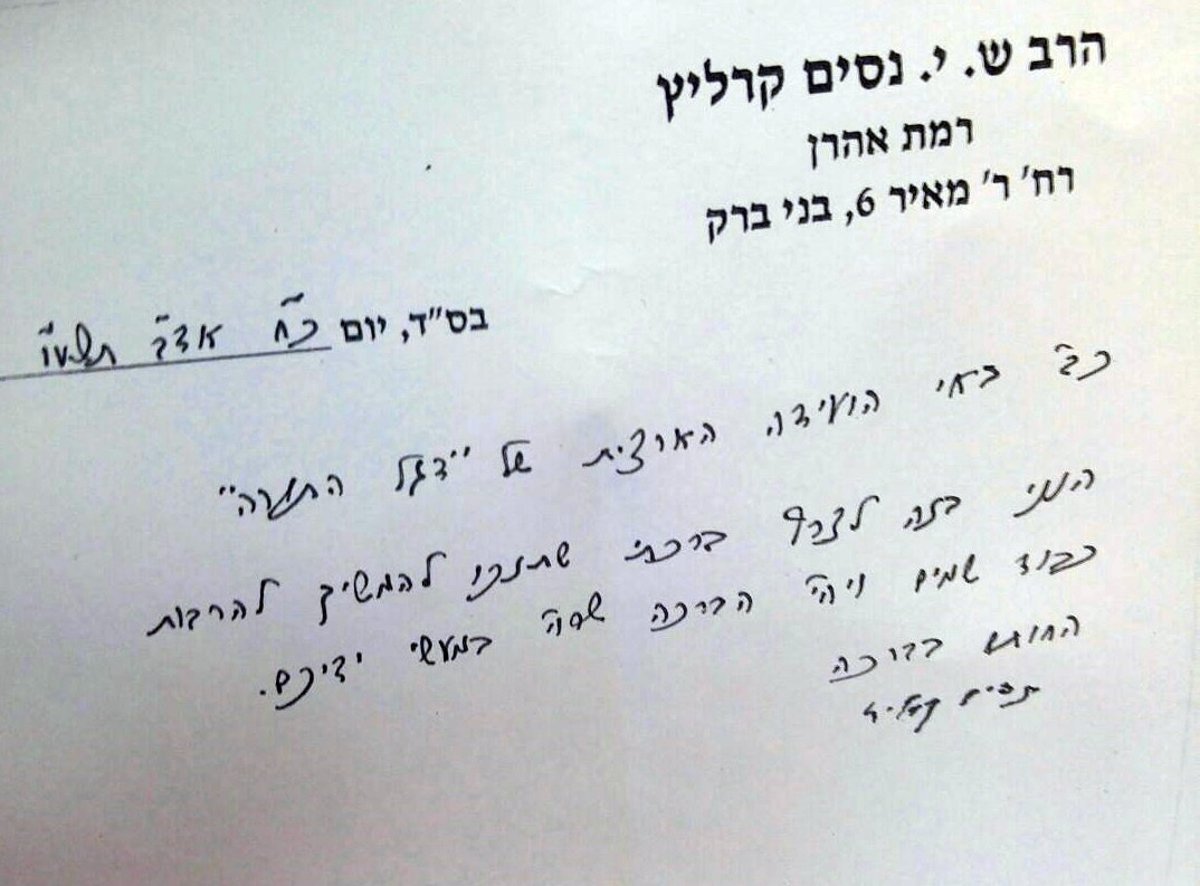 הרב ש. י. נסים קרליץ
רמת אהרן
רח' ר' מאיר 6, בני ברק
בס"ד, יום כ"ח אדר תשע"ו
כב' באי הועידה הארצית של "דגל התורה"
הנני בזה לצרף ברכתי שתזכו להמשיך להרבות
כבוד שמים ויהי' הברכה שרוי' במעשי ידיכם.
החותם בברכה
נסים קרליץ